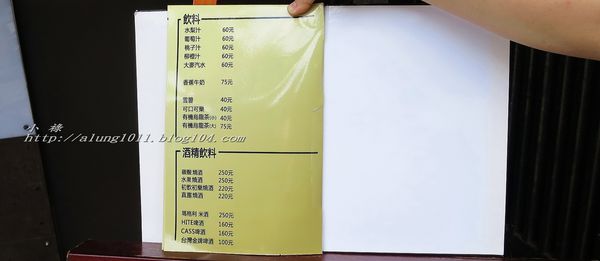 飲料
水梨汁 60元
葡萄汁 60元
桃子汁 60元
柳橙汁 60元
大麥汽水 60元
香蕉牛奶 75元
雪碧 40元
可口可樂 40元
有機烏龍茶(小) 40元
有機烏龍茶(大) 75元
酒精飲料
碳酸燒酒 250元
水果燒酒 250元
初飲初樂燒酒 220元
真露燒酒 220元
瑪格利 米酒 250元
HITE啤酒 160元
CASS啤酒 160元
台灣金牌啤酒 100元
小祿
http://alung1011.blog104.com/